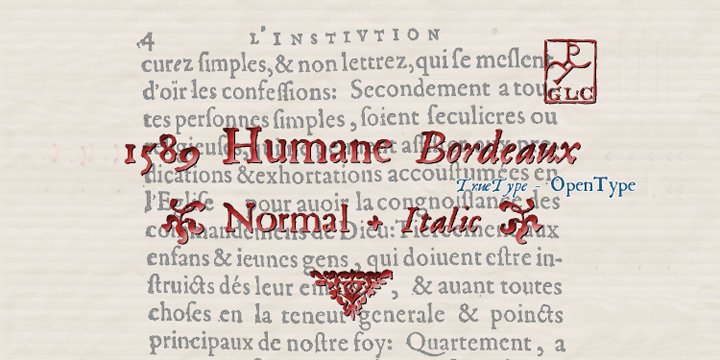 4 L'INSTIVTION
curez ſimples, & non lettrez, qui ſe meſlent
d'oïr les confeſſions: Secondement a tou-
GLC
tes perſonnes ſimples, ſoient ſeculieres ou
1589 Humane Bordeaux
dications & exhortations accouſtumées en
TrueType - OpenType
l'Egliſe pour auoir la congnoiſſance des
Normal + Italic
commandemens de Dieu: Tiercement aux
enfans & ieunes gens, qui doiuent eſtre in-
ſtruicts dés leur , & auant toutes
choſes en la teneur generale & poincts
principaux de noſtre foy: Quartement, a